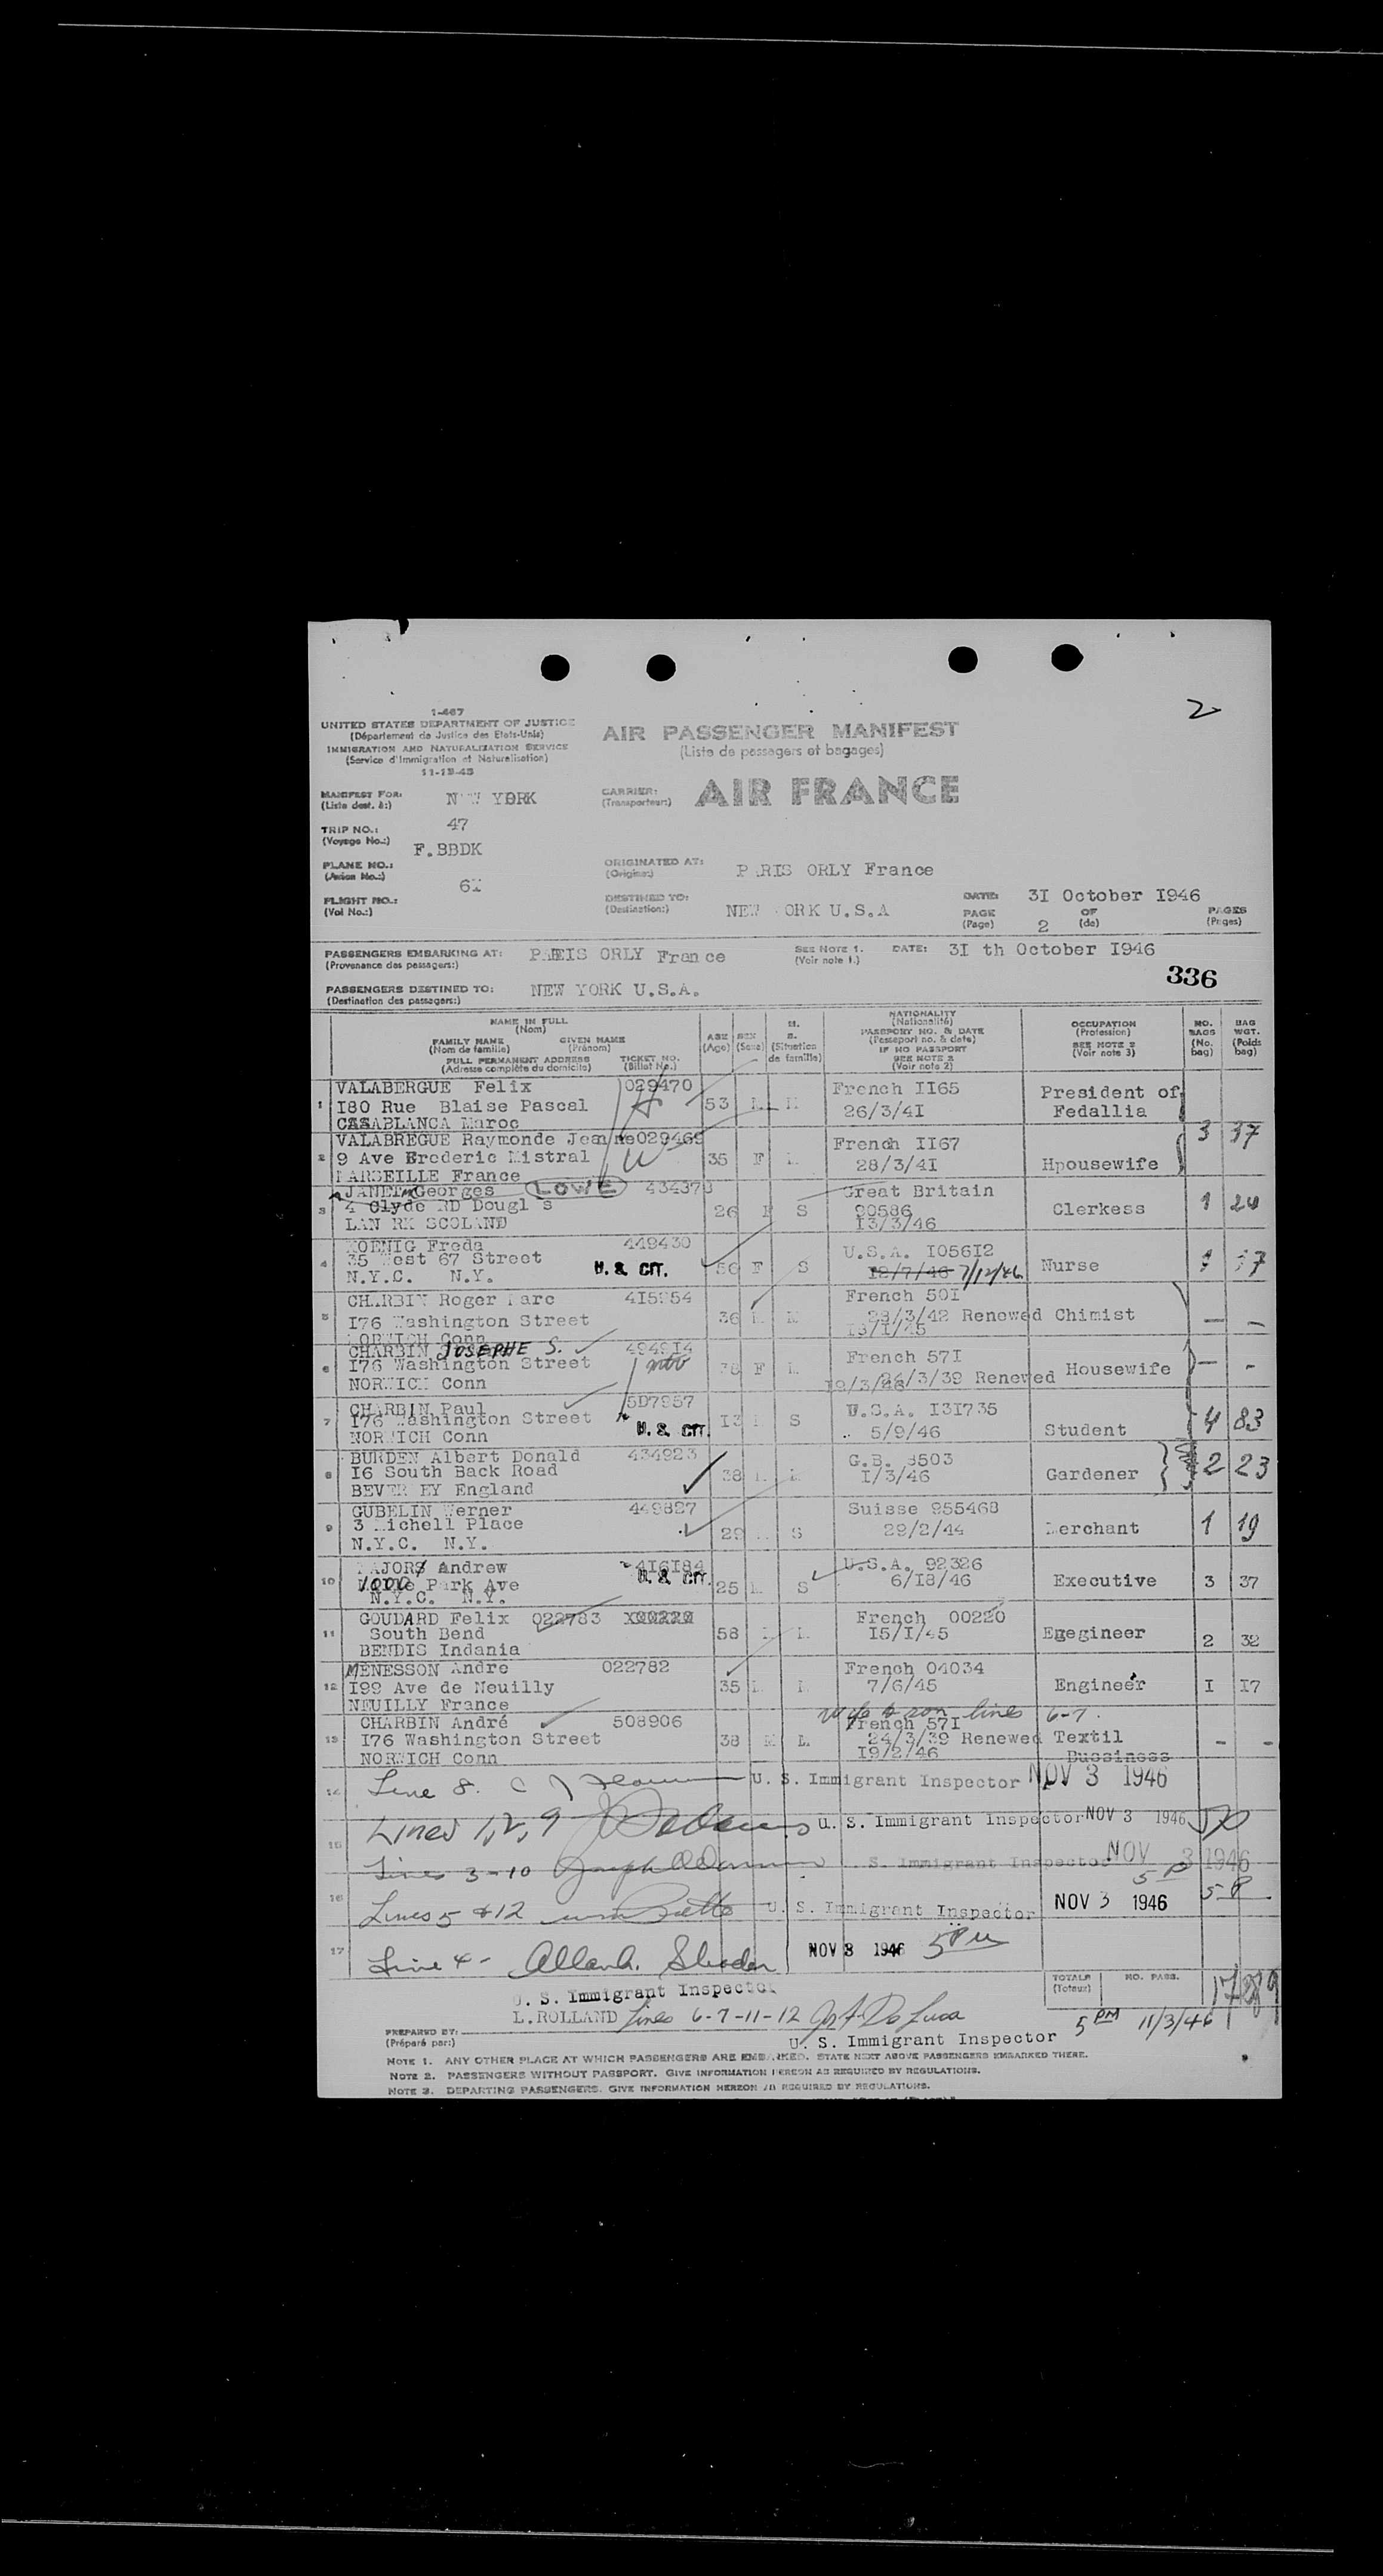 2
1-467
UNITED STATES DEPARTMENT OF JUSTICE
(Département de Justice des Etats-Unis)
IMMIGRATION AND NATURALIZATION SERVICE
(Service d'Immigration et Naturalisation)
11-13-45
AIR PASSENGER MANIFEST
(Liste de passagers et bagages)
MANIFEST FOR: N W YORK
(Liste dest. à:)
CARRIER: AIR FRANCE
(Transporteur:)
TRIP NO.: 47
(Voyage No.:)
F.BBDK
PLANE NO.:
(Avion No.:)
ORIGINATED AT: P RIS ORLY France
(Origine:)
6I
FLIGHT NO.:
(Vol No.:)
DESTINED TO: NEW ORK U.S.A
(Destination:)
DATE: 3I October I946
PAGE 2 OF PAGES
(Page) (de) (Pages)
PASSENGERS EMBARKING AT: ORLY France
(Provenance des passagers:)
SEE NOTE 1. DATE: 3I th October I946
(Voir note 1.)
336
PASSENGERS DESTINED TO: NEW YORK U.S.A.
(Destination des passagers:)
NAME IN FULL
(Nom)
FAMILY NAME GIVEN NAME
(Nom de famille) (Prénom)
FULL PERMANENT ADDRESS TICKET NO.
(Adresse complète du domicile) (Billet No.)
AGE (Age)
SEX (Sexe)
M. S. (Situation de famille)
NATIONALITY
(Nationalité)
PASSPORT NO. & DATE
(Passeport no. & date)
IF NO PASSPORT
SEE NOTE 2
(Voir note 2)
OCCUPATION
(Profession)
SEE NOTE 3
(Voir note 3)
NO. BAGS (No. bag)
BAG WGT. (Poids bag)
1 VALABERGUE Felix 029470 French II65 President of
I80 Rue Blaise Pascal 53 26/3/4I Fedallia
CASABLANCA Maroc
2 VALABREGUE Raymonde Jeanne 029469 French II67 3 37
9 Ave Frederic Mistral 35 F 28/3/4I Hpousewife
MARSEILLE France
3 JANET Georges LOWE 434378 Great Britain
4 Clyde RD Dougl s 26 F S 90586 Clerkess 1 24
LAN RK SCOLAND I3/3/46
4 KOENIG Freda 449430 U.S.A. I056I2
35 West 67 Street U. S. CIT. 56 F S 7/12/46 Nurse
N.Y.C. N.Y.
5 CHARBIN Roger Marc French 50I
I76 Washington Street 36 29/3/42 Renewed Chimist — —
NORWICH Conn
6 CHARBIN JOSEPHE S. 4949I4 French 57I
I76 Washington Street 38 F 24/3/39 Renewed Housewife — -
NORWICH Conn
7 CHARBIN Paul 5D7957 U.S.A. I3I735
I76 Washington Street U. S. CIT. I3 S 5/9/46 Student 4 83
NORWICH Conn
8 BURDEN Albert Donald 434923 G.B. 8503
I6 South Back Road 38 I/3/46 Gardener 2 23
BEVER EY England
9 GUBELIN Werner 449827 Suisse 955468
3 Michell Place 29 S 29/2/44 Merchant 1 19
N.Y.C. N.Y.
10 MAJOR Andrew 4I6I84 U.S.A. 92326
1000 Park Ave U. S. CIT. 25 S 6/I8/46 Executive 3 37
N.Y.C. N.Y.
11 GOUDARD Felix 022783 French 00220
South Bend 58 I5/I/45 Engineer 2 32
BENDIS Indania
12 MENESSON Andre 022782 French 04034
I99 Ave de Neuilly 35 7/6/45 Engineer I I7
NEUILLY France
wife & son lines 6-7.
13 CHARBIN André 508906 French 57I
I76 Washington Street 38 M 24/3/39 Renewed Textil - -
NORWICH Conn I9/2/46 Bussiness
14 Line 8. U. S. Immigrant Inspector NOV 3 1946
15 Lines 1, 2, 9 U. S. Immigrant Inspector NOV 3 1946
Lines 3-10 S. Immigrant Inspector NOV 3 1946
16 Lines 5 & 12 U. S. Immigrant Inspector NOV 3 1946 5 P
17 Line 4 - NOV 3 1946 5 PM
U. S. Immigrant Inspector
TOTALS NO. PASS.
(Totaux)
L.ROLLAND Lines 6-7-11-12 5 PM 11/3/46
PREPARED BY:
(Préparé par:)
U. S. Immigrant Inspector
NOTE 1. ANY OTHER PLACE AT WHICH PASSENGERS ARE EMBARKED. STATE NEXT ABOVE PASSENGERS EMBARKED THERE.
NOTE 2. PASSENGERS WITHOUT PASSPORT. GIVE INFORMATION HEREON AS REQUIRED BY REGULATIONS.
NOTE 3. DEPARTING PASSENGERS. GIVE INFORMATION HEREON AS REQUIRED BY REGULATIONS.